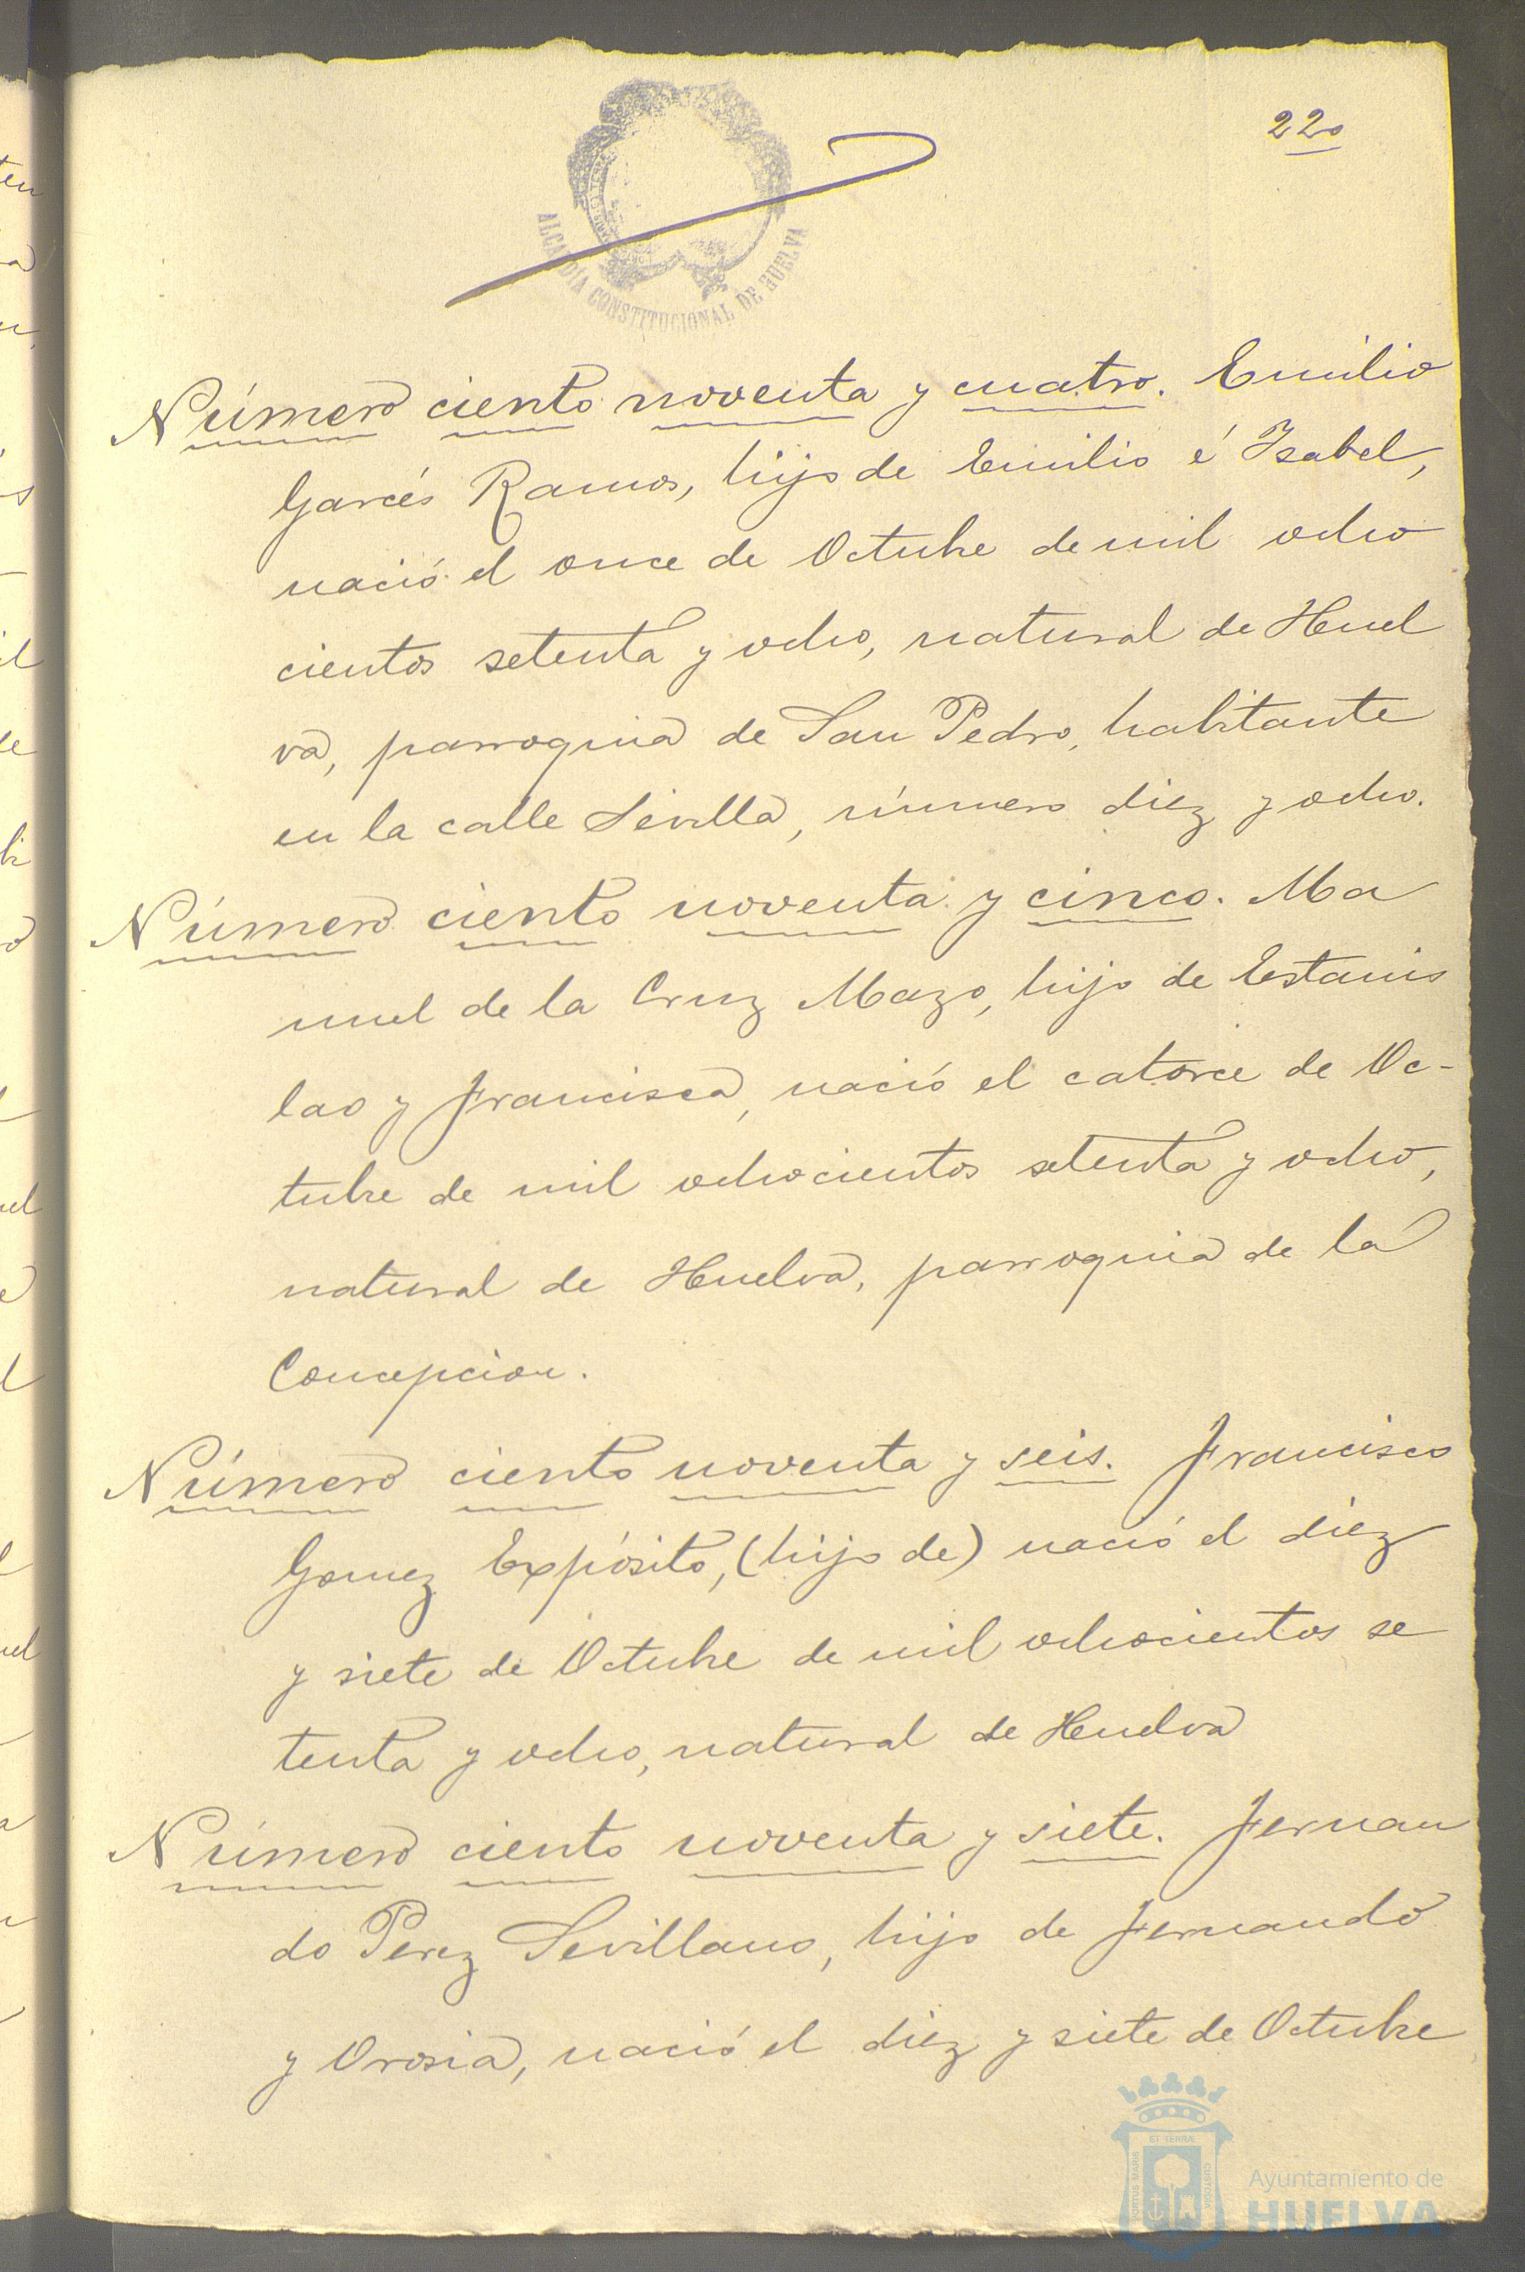 220
ALCALDÍA CONSTITUCIONAL DE HUELVA
Número ciento noventa y cuatro. Emilio
Garcés Ramos, hijo de Emilio é Isabel,
nació el once de Octubre de mil ocho
cientos setenta y ocho, natural de Huel
va, parroquia de San Pedro, habitante
en la calle Sevilla, número diez y ocho.
Número ciento noventa y cinco. Ma
nuel de la Cruz Mazo, hijo de Estanis
lao y Francisca, nació el catorce de Oc-
tubre de mil ochocientos setenta y ocho,
natural de Huelva, parroquia de la
Concepcion.
Número ciento noventa y seis. Francisco
Gomez Expósito, (hijo de) nació el diez
y siete de Octubre de mil ochocientos se
tenta y ocho, natural de Huelva
Número ciento noventa y siete. Fernan
do Perez Sevillano, hijo de Fernando
y Orosia, nació el diez y siete de Octubre
Ayuntamiento de
HUELVA